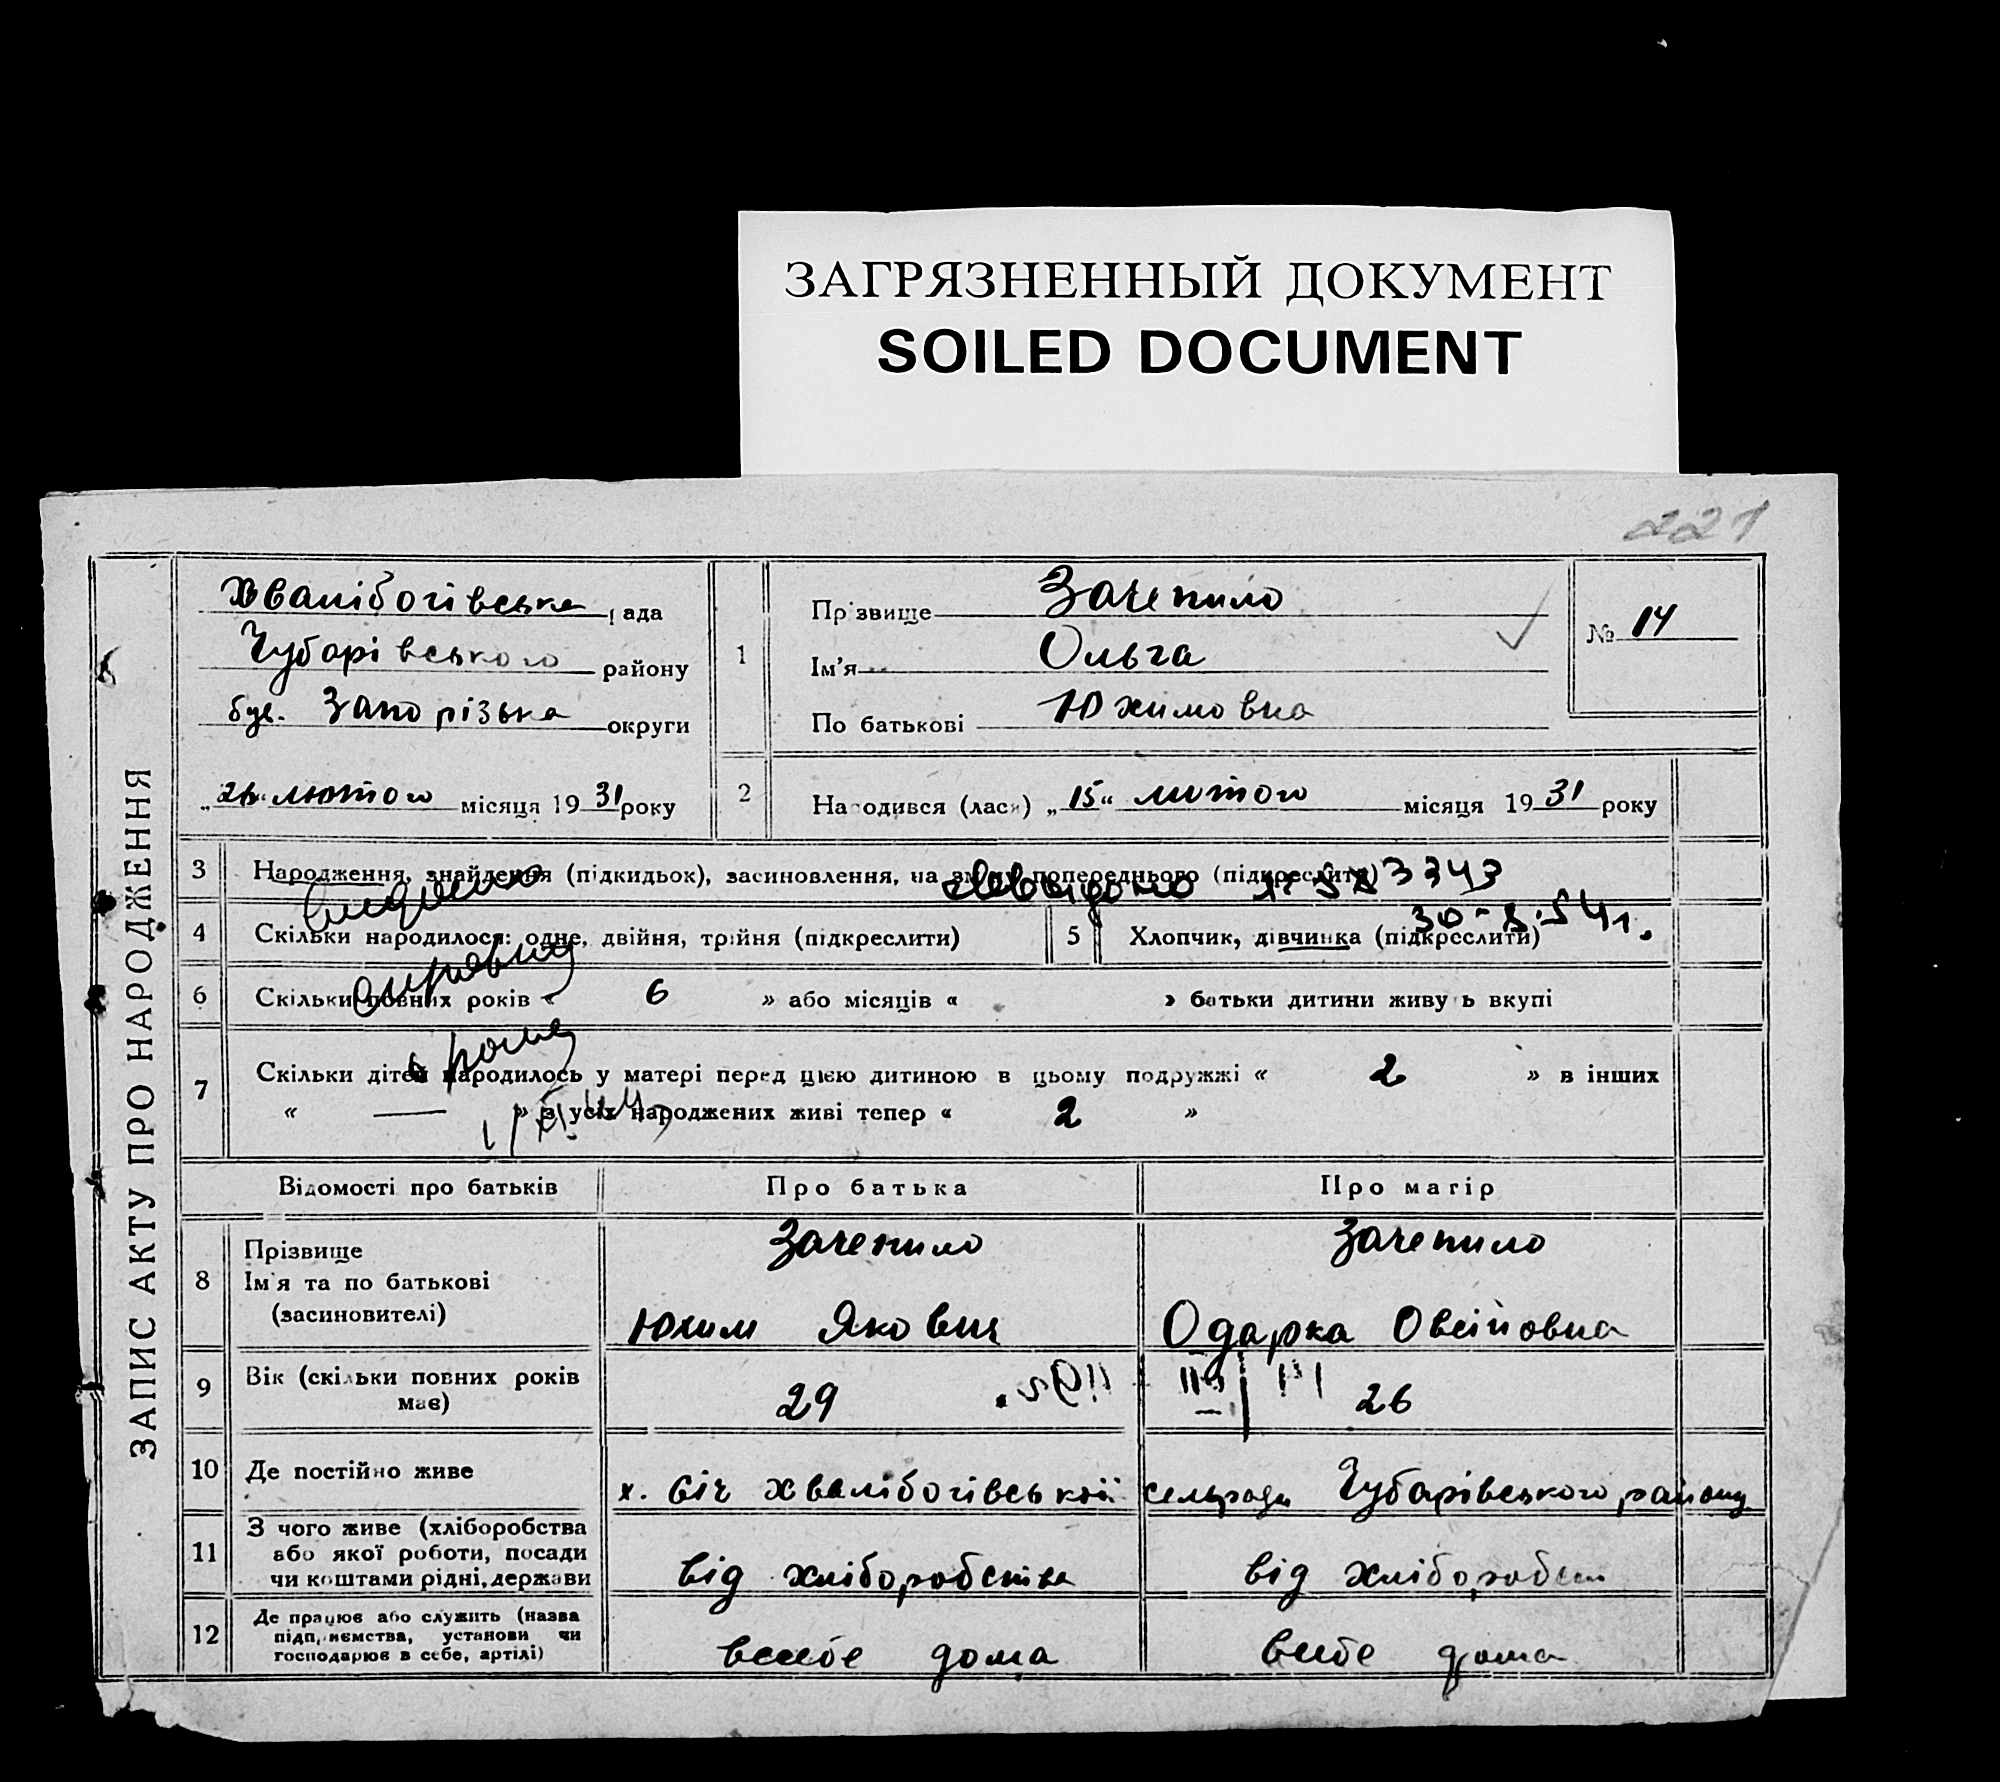 ЗАГРЯЗНЕННЫЙ ДОКУМЕНТ
SOILED DOCUMENT
221
ЗАПИС АКТУ ПРО НАРОДЖЕННЯ
Хвалібогівська рада
Чубарівського району
був. Запорізька округи
„26“ лютого місяця 1931 року
1
Прізвище Зачепило
Ім'я Ольга
По батькові Юхимовна
№ 14
2
Народився (лася) „15“ лютого місяця 1931 року
3 Народження, знайдення (підкидьок), засиновлення, на зміну попереднього (підкреслити)
4 Скільки народилося: одне, двійня, трійня (підкреслити)
5 Хлопчик, дівчинка (підкреслити)
6 Скільки повних років « 6 » або місяців « » батьки дитини живуть вкупі
7 Скільки дітей народилось у матері перед цією дитиною в цьому подружжі « 2 » в інших
« — » з усіх народжених живі тепер « 2 »
Відомості про батьків Про батька Про матір
8 Прізвище
Ім'я та по батькові
(засиновителі)
Зачепило
Юхим Якович
Зачепило
Одарка Овсійовна
9 Вік (скільки повних років
має)
29
26
10 Де постійно живе
х. Січ Хвалібогівської сельради Чубарівського району
11 З чого живе (хліборобства
або якої роботи, посади
чи коштами рідні, держави
від хліборобства
від хліборобст
12 Де працює або служить (назва
підприємства, установи чи
господарює в себе, артілі)
всебе дома
всебе дома